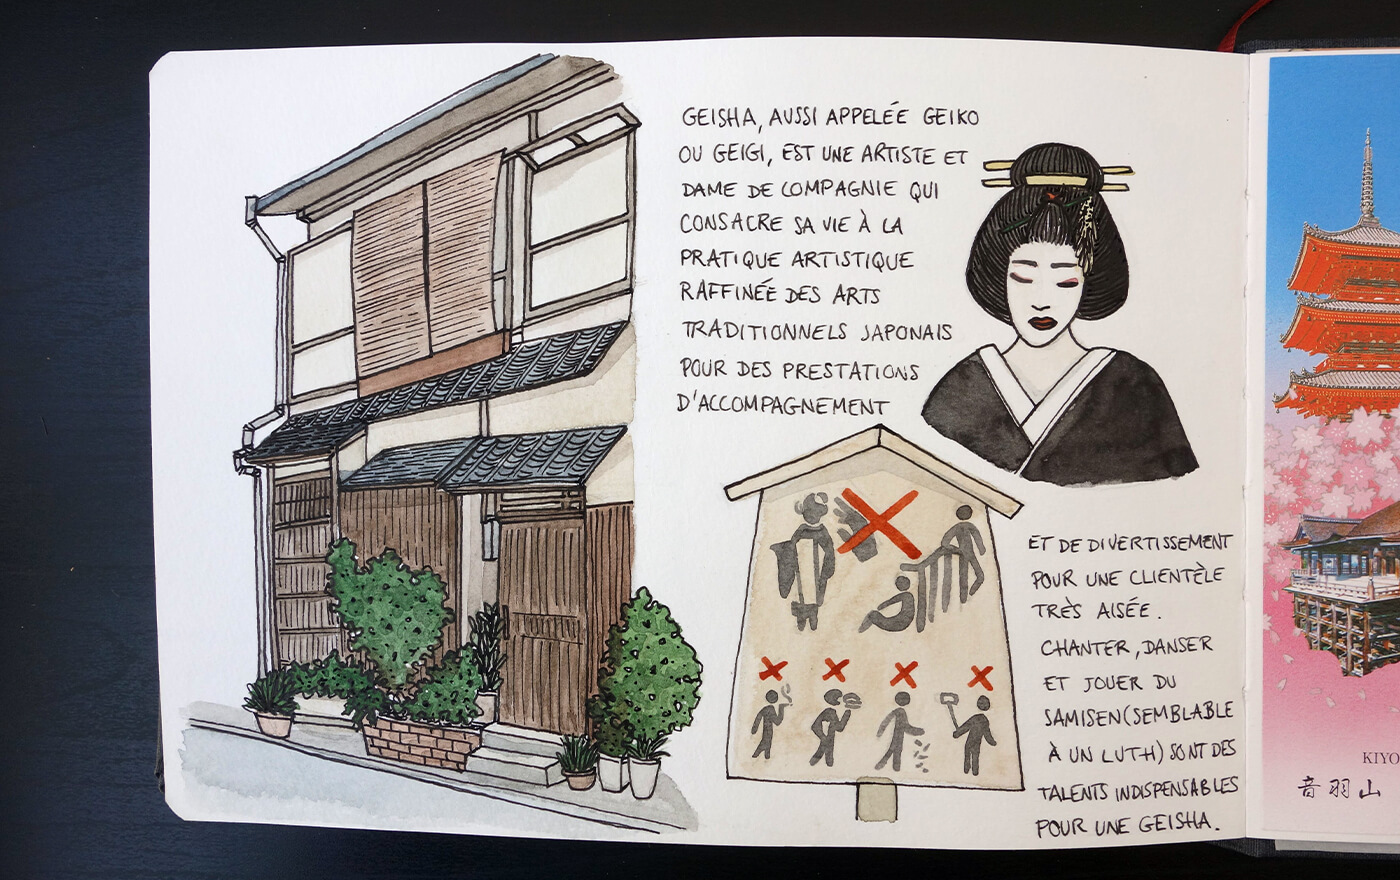 GEISHA, AUSSI APPELÉE GEIKO
OU GEIGI, EST UNE ARTISTE ET
DAME DE COMPAGNIE QUI
CONSACRE SA VIE À LA
PRATIQUE ARTISTIQUE
RAFFINÉE DES ARTS
TRADITIONNELS JAPONAIS
POUR DES PRESTATIONS
D'ACCOMPAGNEMENT
ET DE DIVERTISSEMENT
POUR UNE CLIENTÈLE
TRÈS AISÉE.
CHANTER, DANSER
ET JOUER DU
SAMISEN (SEMBLABLE
À UN LUTH) SONT DES
TALENTS INDISPENSABLES
POUR UNE GEISHA.
KIYO
音羽山